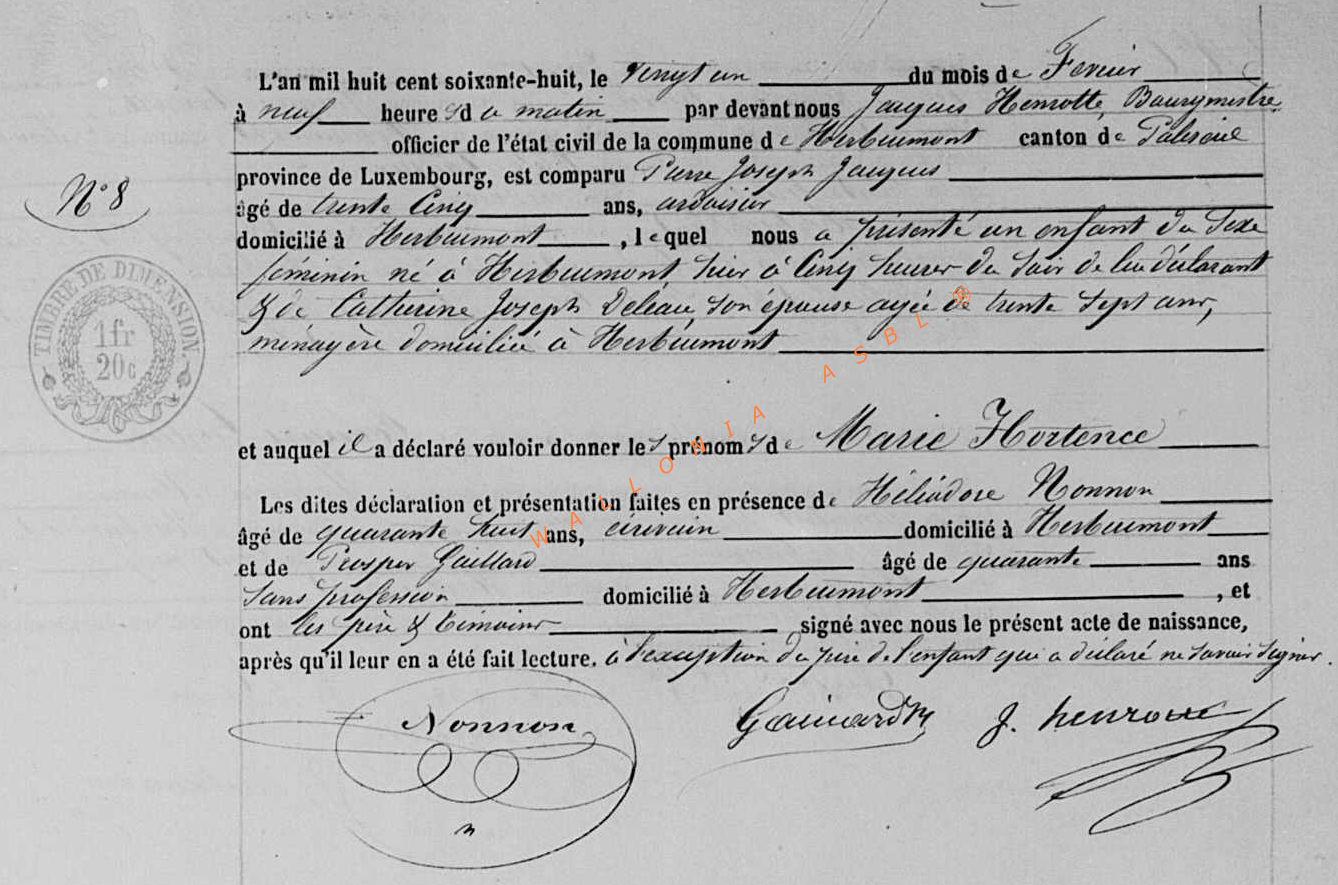 L'an mil huit cent soixante-huit, le vingt un du mois de Fevrier
à neuf heures du matin par devant nous Jacques Henrotte, Bourgmestre,
officier de l'état civil de la commune de Herbeumont canton de Paliseul
province de Luxembourg, est comparu Pierre Joseph Jacques
N° 8
âgé de trente Cinq ans, ardoisier
domicilié à Herbeumont, lequel nous a présenté un enfant du Sexe
féminin né à Herbeumont, hier à Cinq heures du Soir de lui déclarant
& de Catherine Joseph Deleau, son épouse agée de trente Sept ans,
ménagère domiciliée à Herbeumont
TIMBRE DE DIMENSION.
1 fr
20 c
et auquel il a déclaré vouloir donner les prénoms de Marie Hortence
Les dites déclaration et présentation faites en présence de Héliodore Nonnon
âgé de quarante huit ans, écrivain domicilié à Herbeumont
et de Prosper Gaillard âgé de quarante ans
Sans profession domicilié à Herbeumont, et
ont les père & témoins signé avec nous le présent acte de naissance,
après qu'il leur en a été fait lecture. à l'exception du père de l'enfant qui a déclaré ne savoir signer.
Nonnon
J. henrotte
WALLONIA ASBL ®